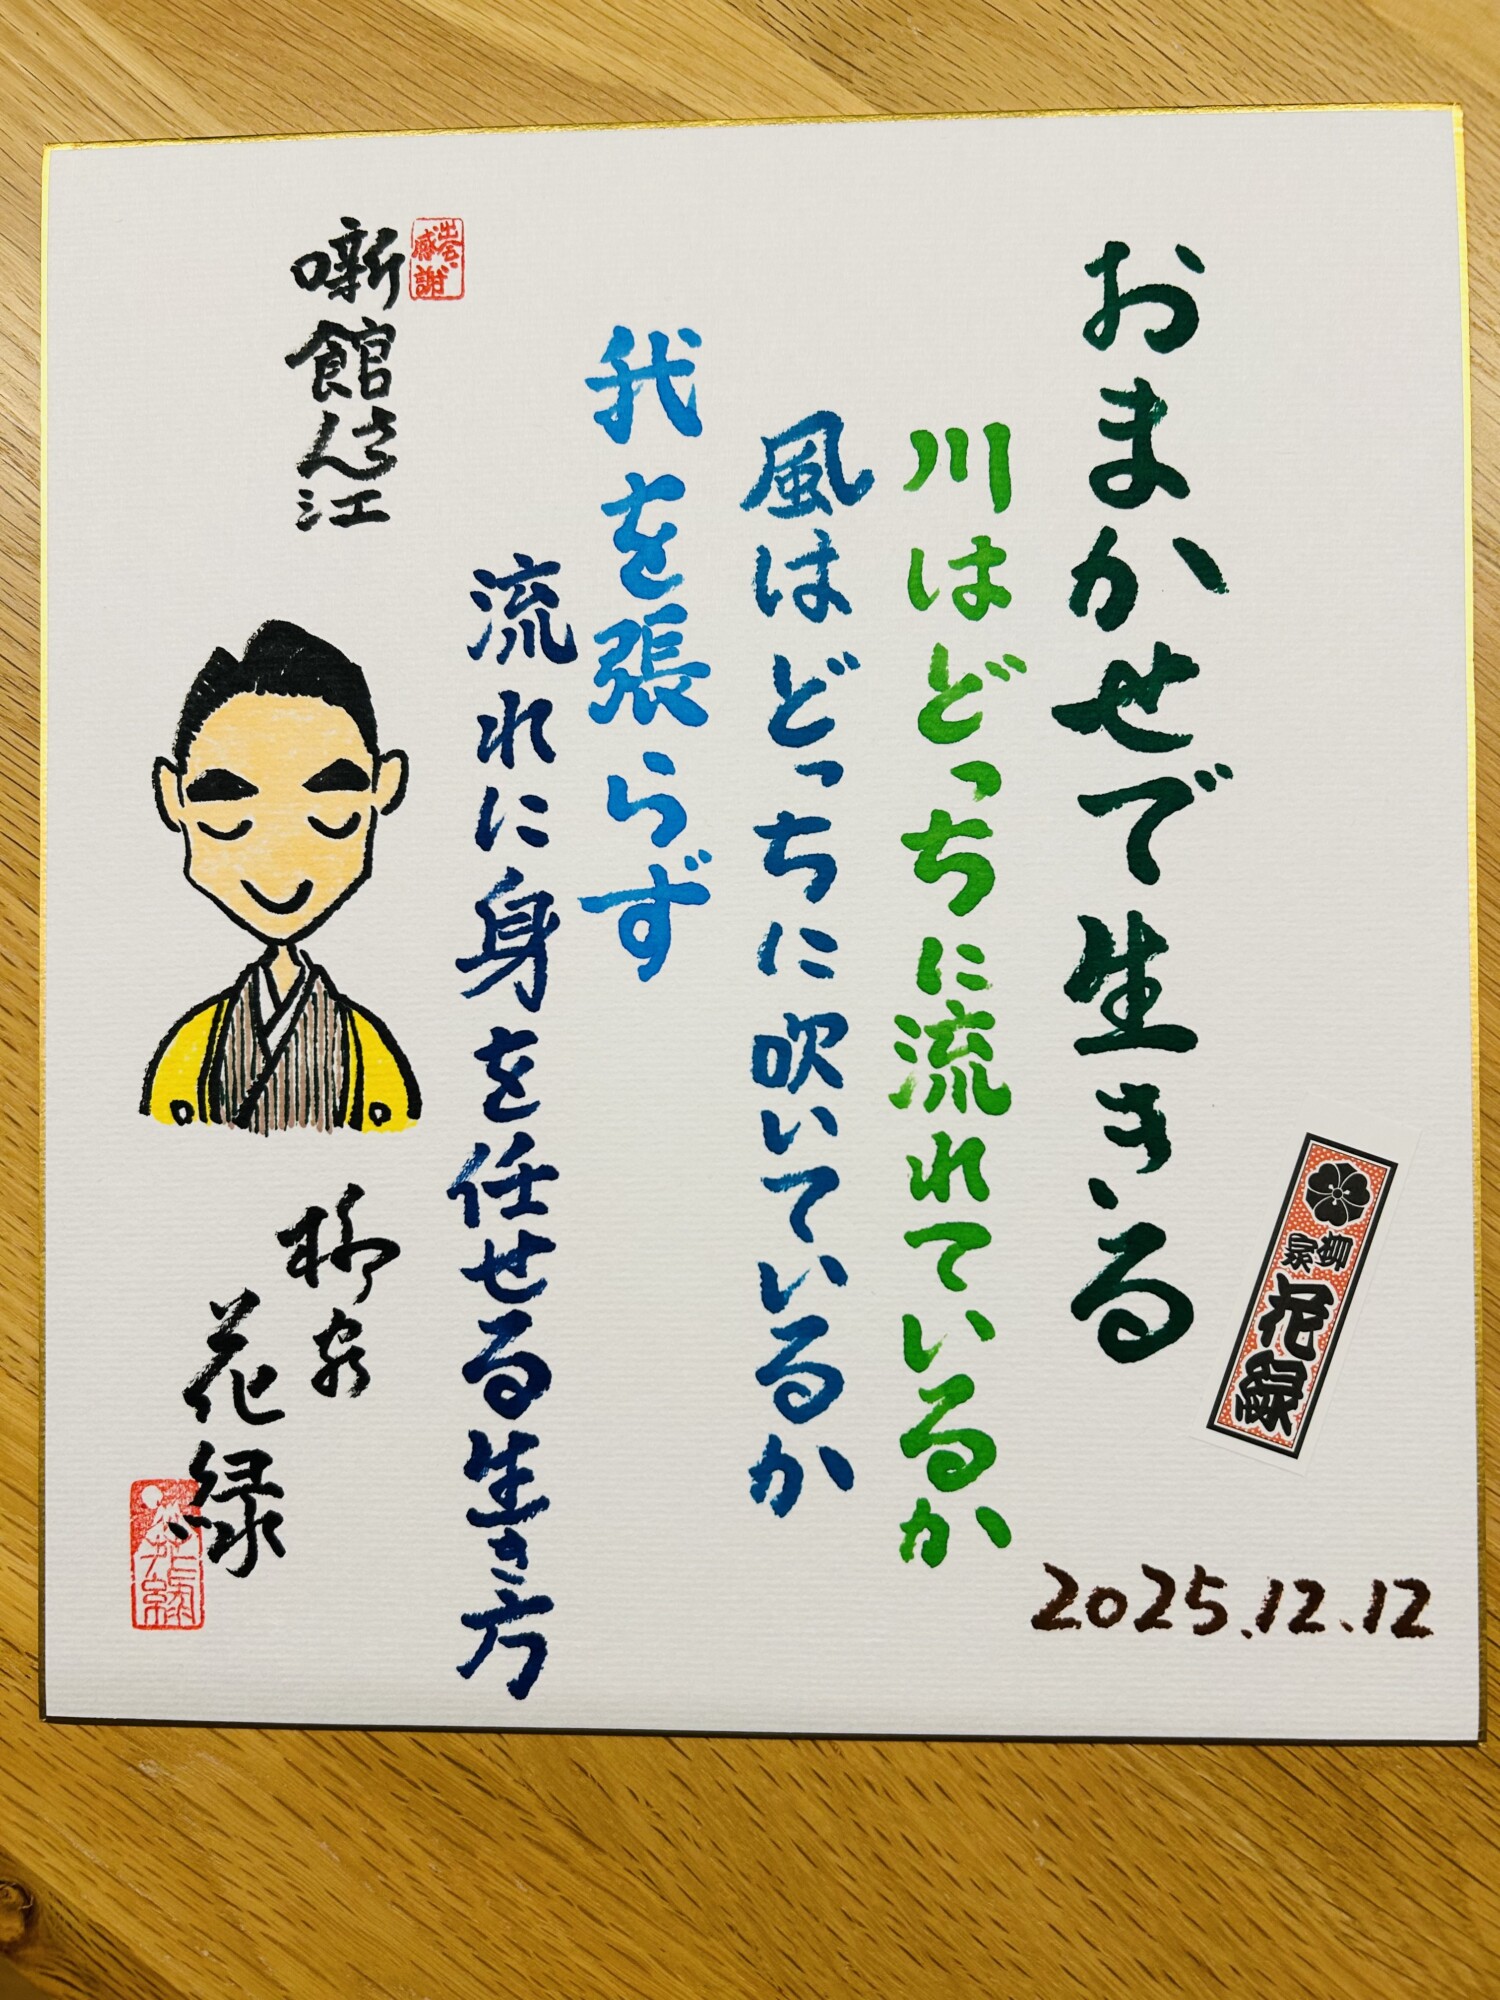 おまかせで生きる
川はどっちに流れているか
風はどっちに吹いているか
我を張らず
流れに身を任せる生き方
出会い感謝
噺館さん江
柳家
花緑
花緑
柳家
花緑
2025.12.12